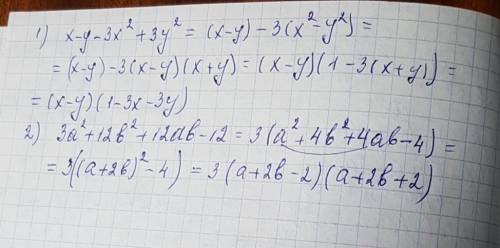 1) x-y-3x²+3y² = (x-y)-3(x²-y²)=
= (x-y)-3(x-y)(x+y)=(x-y)(1-3(x+y))=
=(x-y)(1-3x-3y)
2) 3a²+12b²+12ab-12=3(a²+4b²+4ab-4)=
=3((a+2b)²-4)=3(a+2b-2)(a+2b+2)